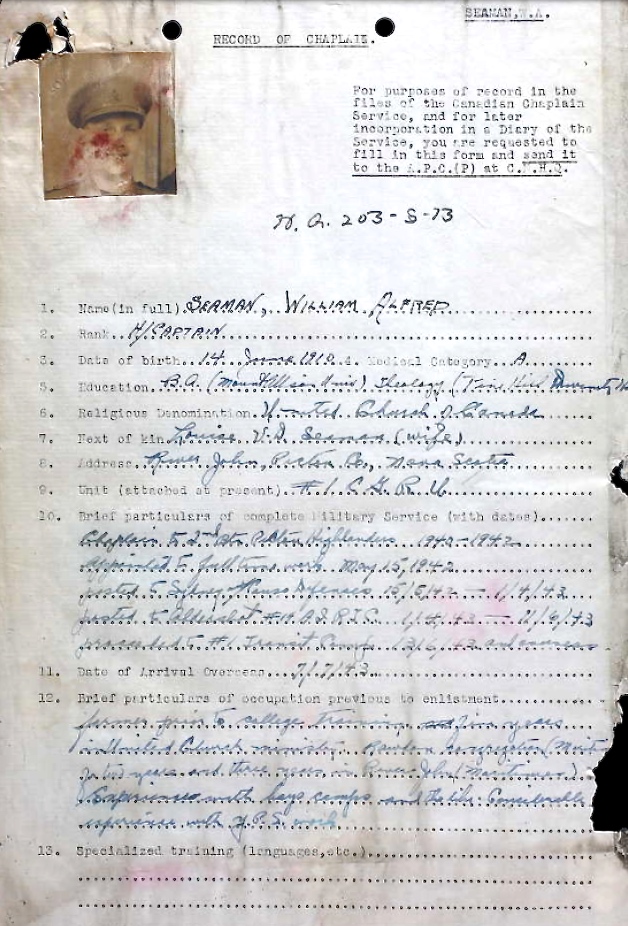 SEAMAN, W.A.
RECORD OF CHAPLAIN.
For purposes of record in the
files of the Canadian Chaplain
Service, and for later
incorporation in a Diary of the
Service, you are requested to
fill in this form and send it
to the A.P.C.(P) at C.M.H.Q.
203-S-73
1. Name(in full) SEAMAN, WILLIAM ALFRED
2. Rank H/CAPTAIN
3. Date of birth 14 June 1910 4. Medical Category A
5. Education B.A. (Mount Allison Univ) Theology (Pine Hill Divinity
6. Religious Denomination United Church of Canada
7. Next of kin Louise V.D. Seaman (wife)
8. Address River John, Pictou Co., Nova Scotia
9. Unit (attached at present) #1 C.G.R.U.
10. Brief particulars of complete Military Service (with dates)
Chaplain to 2nd Bn Pictou Highlanders 1940-1942
Appointed to full time work May 15, 1942
posted to Sydney Defences 15/5/42 — 1/4/43
posted to Aldershot #14 A.I.T.C. 1/4/43 — 11/6/43
proceeded to #1 Transit Camp 13/6/43 and overseas
11. Date of Arrival Overseas 7/7/43
12. Brief particulars of occupation previous to enlistment
farmer prior to college training, five years
in United Church ministry. Rawdon Congregation
for two years and three years in River John (Maritimes).
Experiences with boys camps and the like. Considerable
experience with Y.P.S. work
13. Specialized training (languages,etc.)